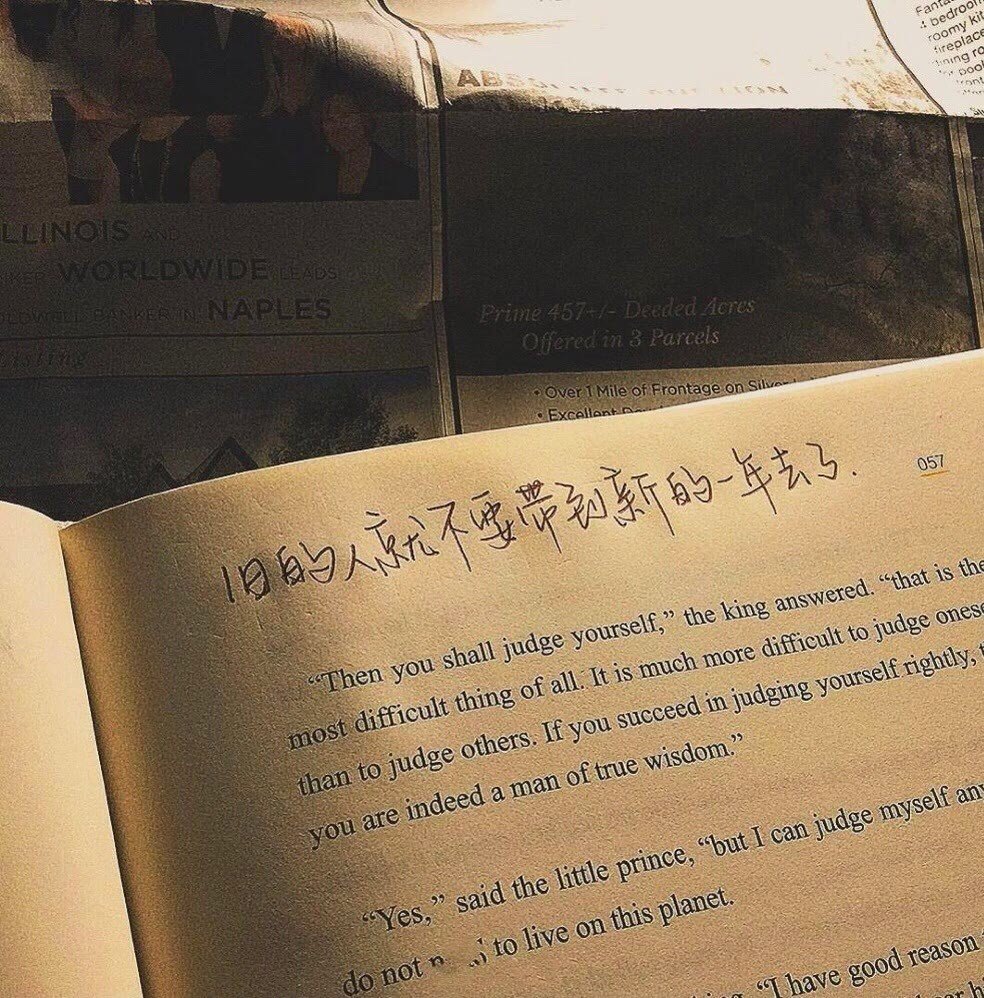 Fanta
4 bedroom
roomy kit
fireplace
dining ro
pool
front
ABSOLUTE AUCTION
LLINOIS AND
WORLDWIDE LEADS
OLDWELL BANKER IN NAPLES
Listing
Prime 457+/- Deeded Acres
Offered in 3 Parcels
• Over 1 Mile of Frontage on Silver
• Excellent
057
旧的人就不要带到新的一年去了.
“Then you shall judge yourself,” the king answered. “that is the
most difficult thing of all. It is much more difficult to judge onese
than to judge others. If you succeed in judging yourself rightly, t
you are indeed a man of true wisdom.”
“Yes,” said the little prince, “but I can judge myself any
do not to live on this planet.
“I have good reason